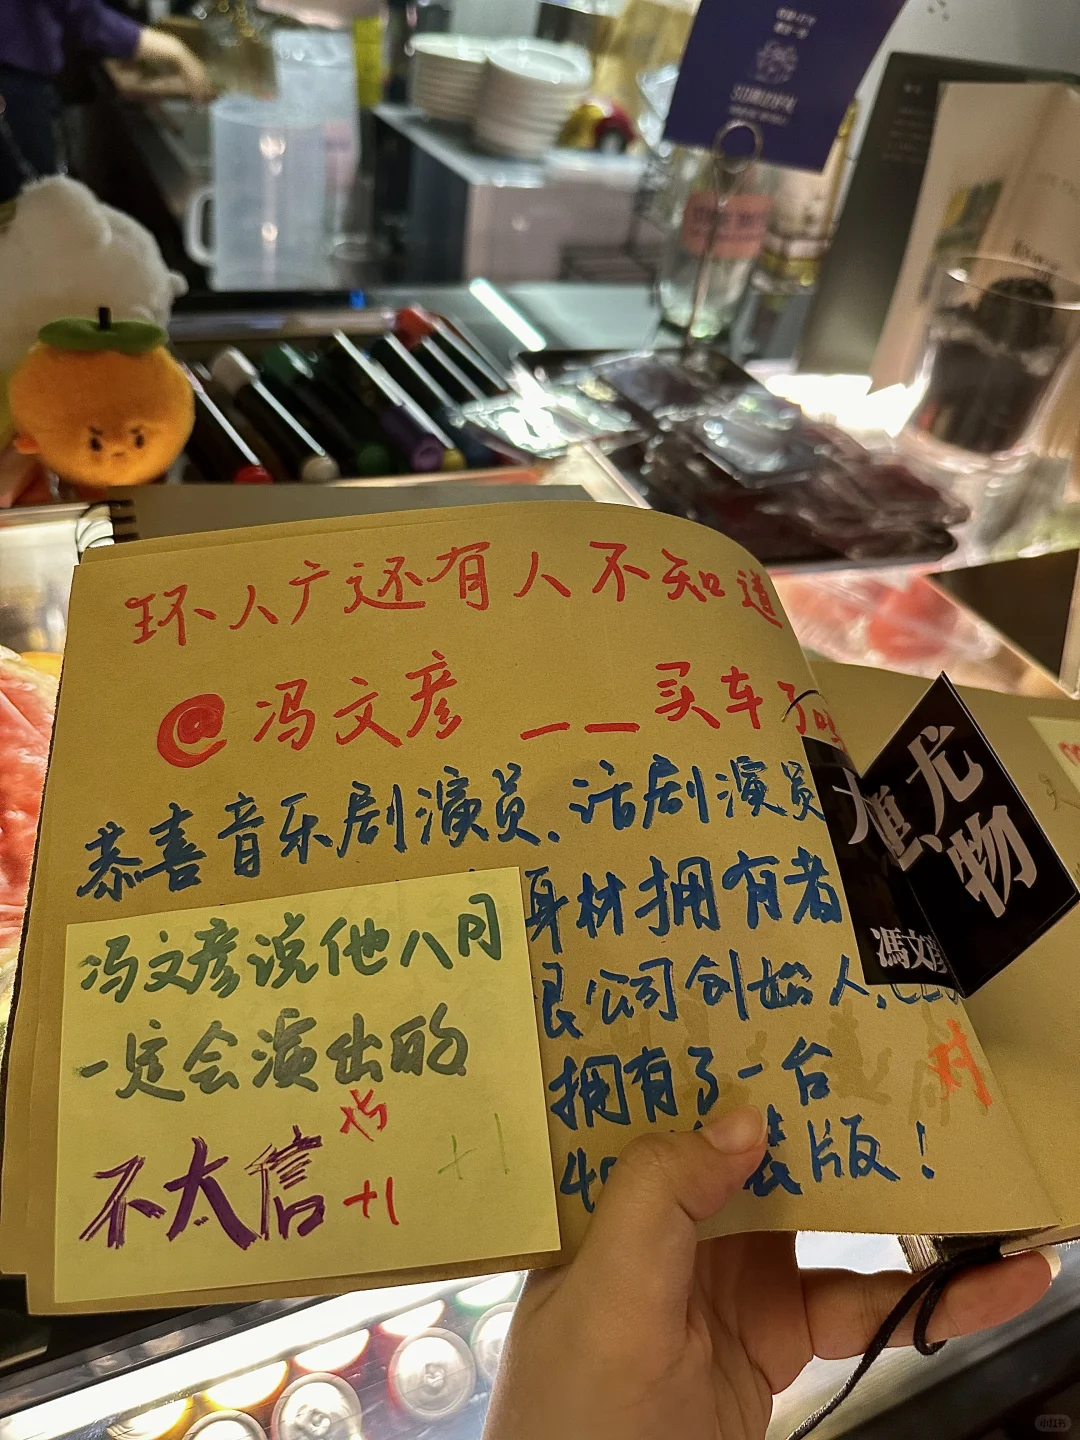 环人广还有人不知道
@冯文彦__买车了吗
恭喜音乐剧演员.话剧演员
身材拥有者
公司创始人,CEO
拥有了一台
版!
对
冯文彦说他八月
一定会演出的
不太信
+1
+1
尤物
馮文彦
小红书